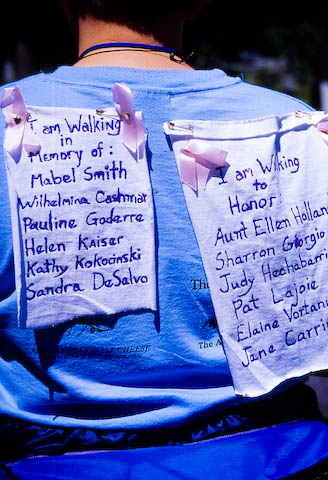 I am Walking
in
Memory of:
Mabel Smith
Wilhelmina Cashmar
Pauline Goderre
Helen Kaiser
Kathy Kokocinski
Sandra DeSalvo
I am Walking
to
Honor:
Aunt Ellen Hollan
Sharron Giorgio
Judy Hechabarri
Pat Lajoie
Elaine Vortan
Jane Carri
The
The A
CHEESE